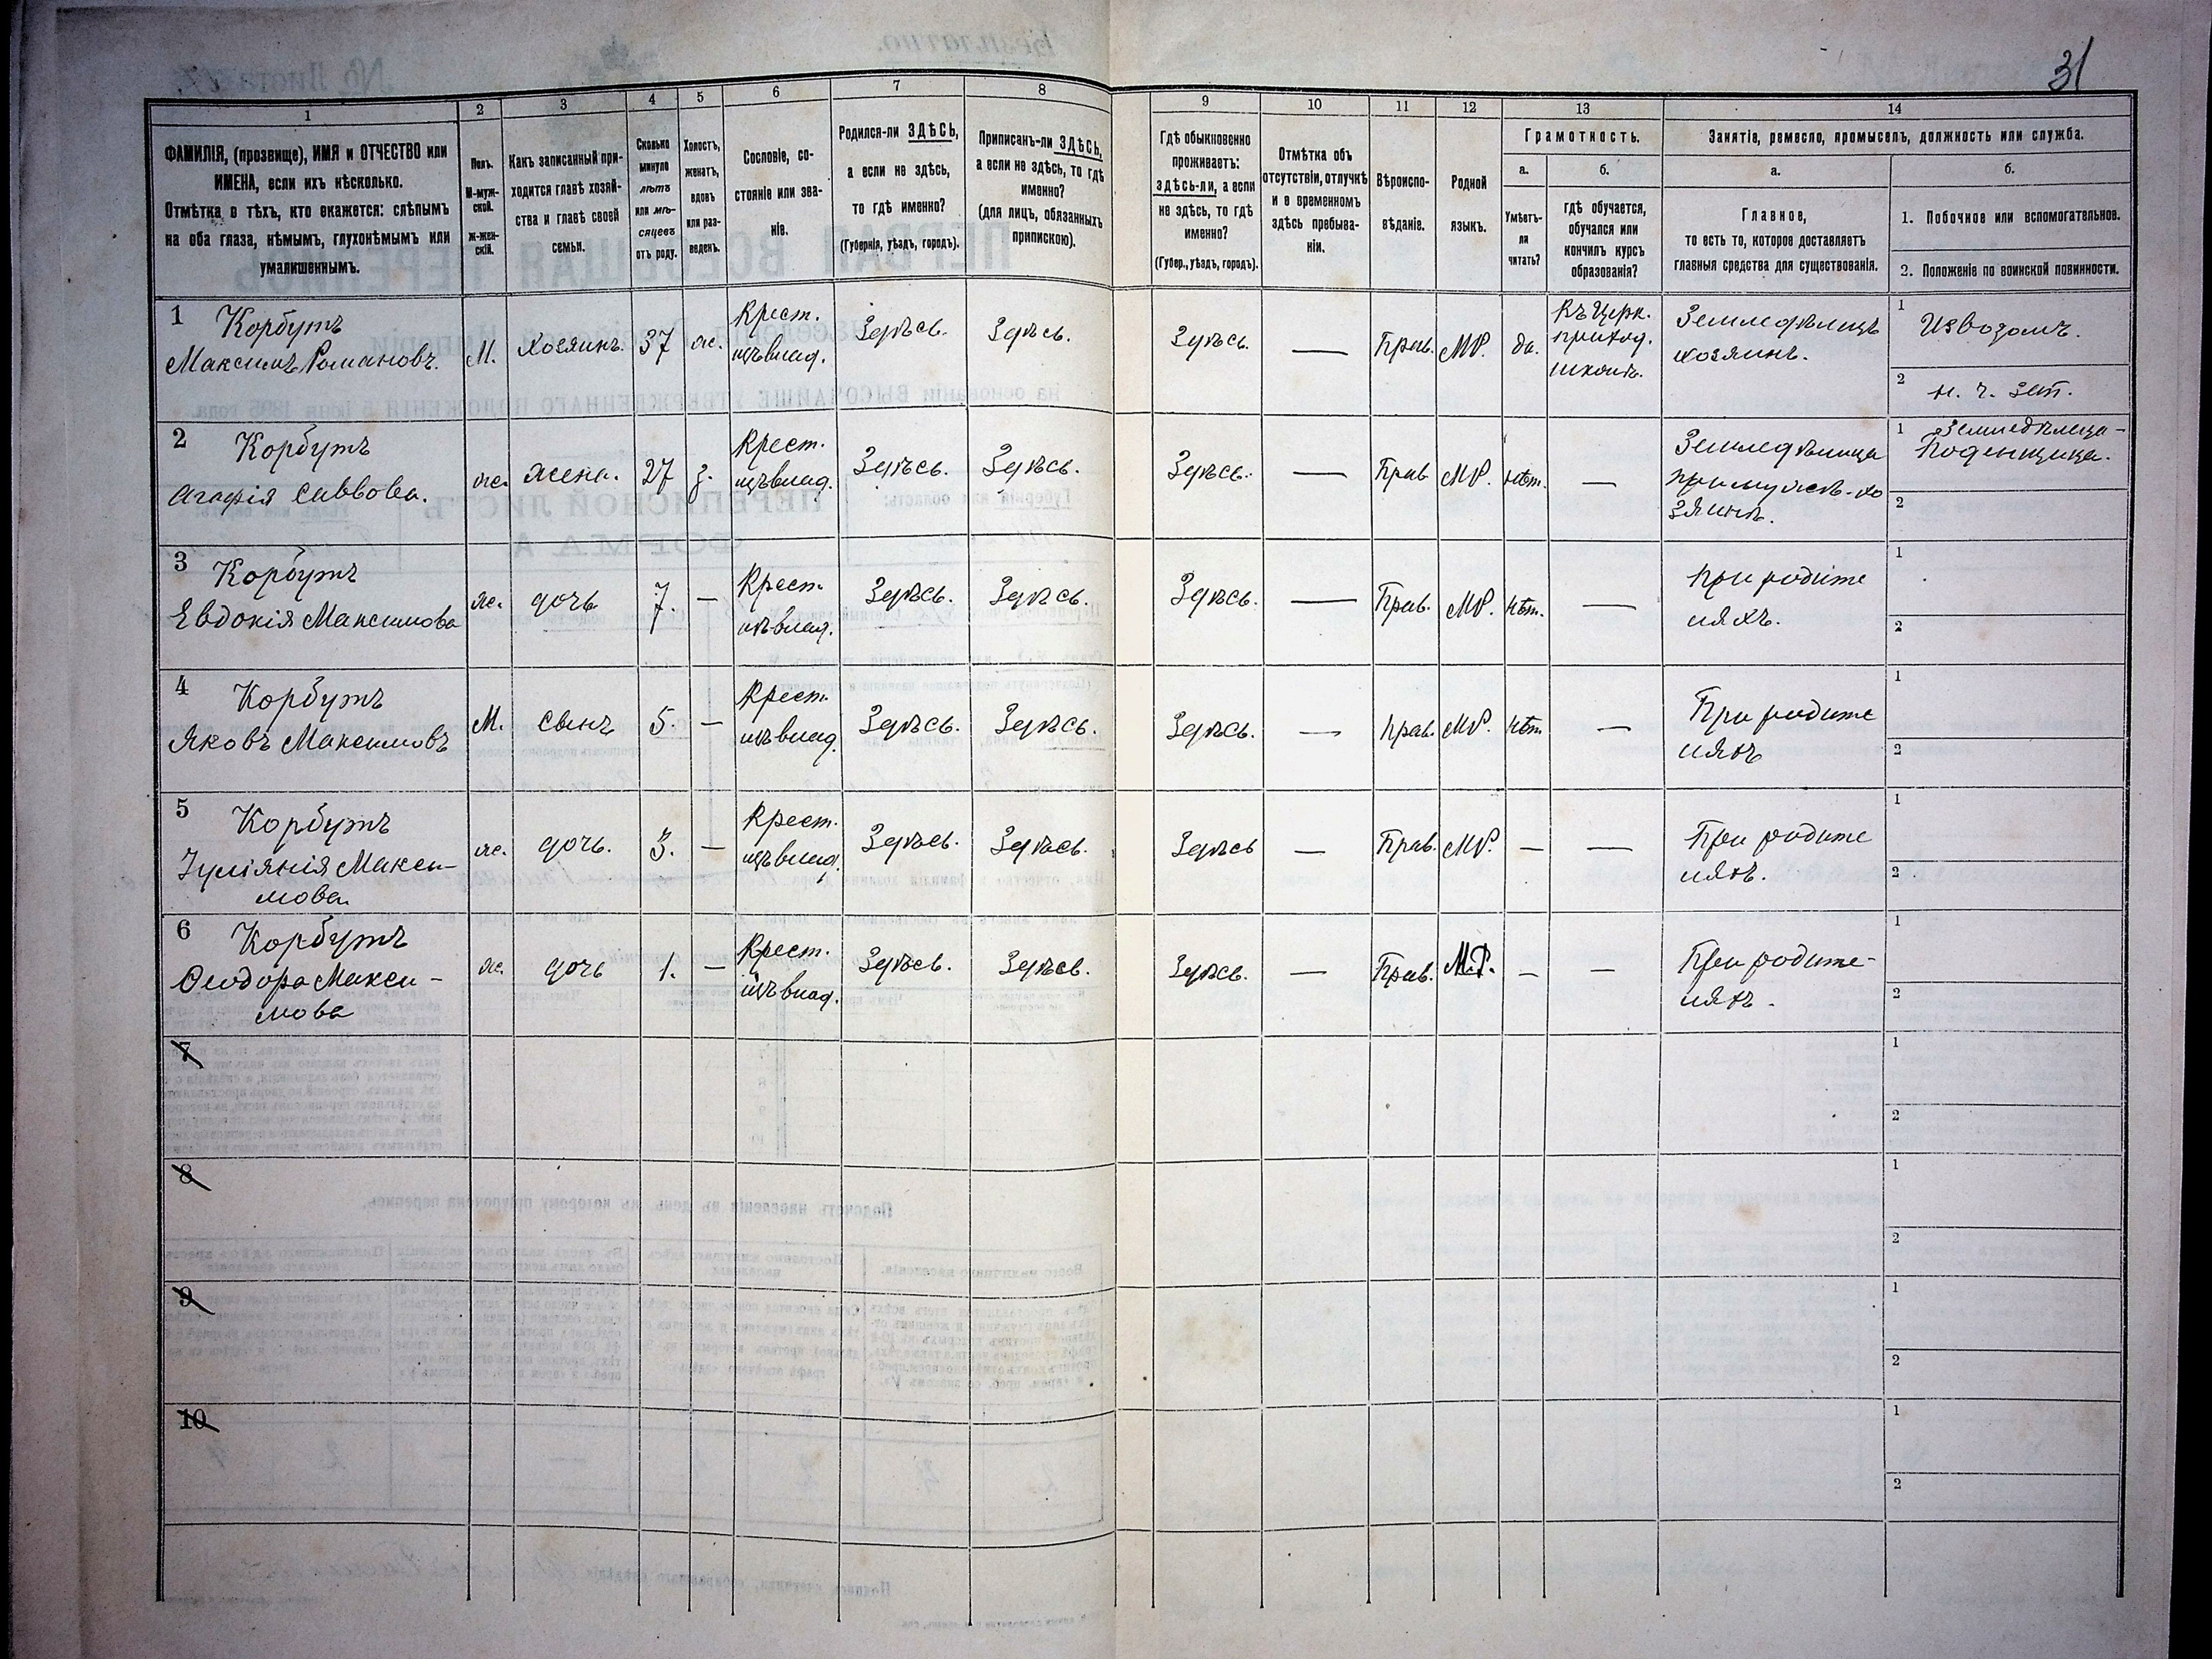 31
1 2 3 4 5 6 7 8 9 10 11 12 13 14
ФАМИЛІЯ, (прозвище), ИМЯ и ОТЧЕСТВО или
ИМЕНА, если ихъ нѣсколько.
Отмѣтка о тѣхъ, кто окажется: слѣпымъ
на оба глаза, нѣмымъ, глухонѣмымъ или
умалишеннымъ.
Полъ.
М-муж-
ской.
Ж-жен-
скій.
Какъ записанный при-
ходится главѣ хозяй-
ства и главѣ своей
семьи.
Сколько
минуло
лѣтъ
или мѣ-
сяцевъ
отъ роду.
Холостъ,
женатъ,
вдовъ
или раз-
веденъ.
Сословіе, со-
стояніе или зва-
ніе.
Родился-ли ЗДѢСЬ,
а если не здѣсь,
то гдѣ именно?
(Губернія, уѣздъ, городъ).
Приписанъ-ли ЗДѢСЬ,
а если не здѣсь, то гдѣ
именно?
(для лицъ, обязанныхъ
припискою).
Гдѣ обыкновенно
проживаетъ:
ЗДѢСЬ-ли, а если
не здѣсь, то гдѣ
именно?
(Губер., уѣздъ, городъ).
Отмѣтка объ
отсутствіи, отлучкѣ
и о временномъ
здѣсь пребыва-
ніи.
Вѣроиспо-
вѣданіе.
Родной
языкъ.
Грамотность.
а.
Умѣетъ-
ли
читать?
б.
гдѣ обучается,
обучался или
кончилъ курсъ
образованія?
Занятіе, ремесло, промыселъ, должность или служба.
а.
Главное,
то есть то, которое доставляетъ
главныя средства для существованія.
б.
1. Побочное или вспомогательное.
2. Положеніе по воинской повинности.
1 Корбутъ
Максимъ Романовъ.
М.
Хозяинъ.
37
ж.
Крест.
щъвлад.
Здѣсь.
Здѣсь.
Здѣсь.
—
Прав.
МР.
да.
Въ Церк.
приход.
школѣ.
Земледѣлецъ
хозяинъ.
1 Извозомъ.
2 н. ч. зап.
2 Корбутъ
Агафія Саввова.
ж.
жена.
27
з.
Крест.
щъвлад.
Здѣсь.
Здѣсь.
Здѣсь.
—
Прав
МР.
нѣт.
—
Земледѣлица
при мужѣ-хо
зяинѣ.
1 Земледѣлица-
Поденщица.
2
3 Корбутъ
Евдокія Максимова
ж.
дочь
7.
—
Крест.
щъвлад.
Здѣсь.
Здѣсь.
Здѣсь.
—
Прав.
МР.
нѣт.
—
При родите
ляхъ.
1
2
4 Корбутъ
Яковъ Максимовъ
М.
сынъ
5.
—
Крест.
щъвлад.
Здѣсь.
Здѣсь.
Здѣсь.
—
Прав.
МР.
нѣт
—
При родите
ляхъ
1
2
5 Корбутъ
Іуліянія Макси-
мова.
ж.
дочь.
3.
—
Крест.
щъвлад.
Здѣсь.
Здѣсь.
Здѣсь
—
Прав.
МР.
—
—
При родите
ляхъ.
1
2
6 Корбутъ
Ѳеодора Макси-
мова
ж.
дочь
1.
—
Крест.
щъвлад.
Здѣсь.
Здѣсь.
Здѣсь.
—
Прав.
М.Р.
—
—
При родите-
ляхъ.
1
2
7
1
2
8
1
2
9
1
2
10
1
2